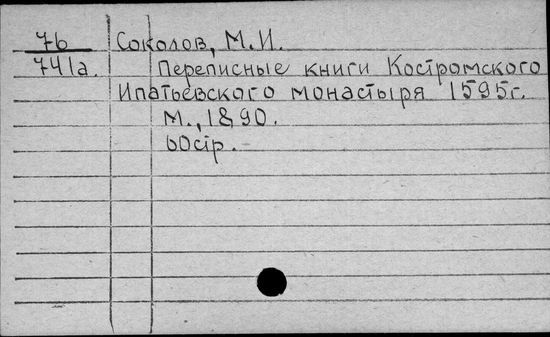 7б Соколов, М.И.
741а. Переписные книги Костромского
Ипатьевского монастыря 1595г.
М., 1890.
60стр.